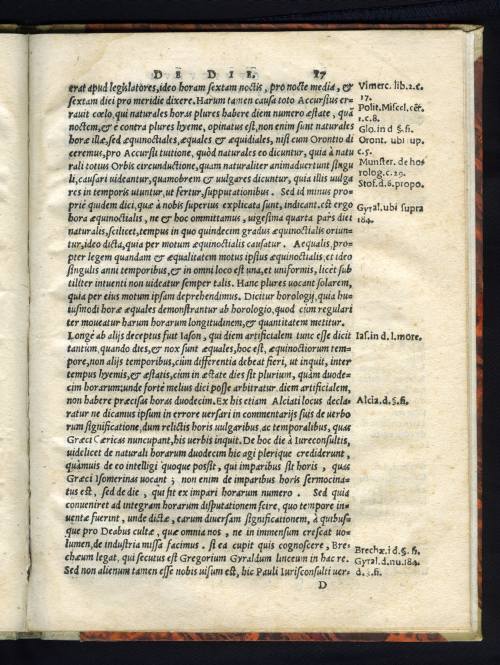 DE DIE. 17
erat apud legislatores, ideo horam sextam noctis, pro nocte mediæ, &
sextam diei pro meridie dixere. Harum tamen causa toto Accursius er-
rauit cœlo, qui naturales horas plures habere diem numero æstate, quà
noctem, & è contra plures hyeme, opinatus est, non enim sunt naturales
horæ illæ, sed æquinoctiales, æquales & æquidiales, nisi cum Orontio di
ceremus, pro Accursii tuitione, quòd naturales eo dicuntur, quia à natu
rali totus Orbis circunductione, quam naturaliter animaduertunt singu
li, causari uideantur, quamobrem & uulgares dicuntur, quia illis uulga
res in temporis utuntur, ut fertur, supputationibus. Sed id minus pro-
priè quidem dici, quæ à nobis superius explicata sunt, indicant. est ergo
hora æquinoctialis, ne & hoc ommittamus, uigesima quarta pars diei
naturalis, scilicet, tempus in quo quindecim gradus æquinoctialis oriun-
tur, ideo dicta, quia per motum æquinoctialis causatur. Aequalis, pro-
pter legem quandam & æqualitatem motus ipsius æquinoctialis, et ideo
singulis anni temporibus, & in omni loco est una, et uniformis, licèt sub
tiliter intuenti non uideatur semper talis. Hanc plures uocant solarem,
quia per eius motum ipsam deprehendimus. Dicitur horologij, quia hu-
iusmodi horæ æquales demonstrantur ab horologio, quod cùm regulari
ter moueatur harum horarum longitudinem, & quantitatem metitur.
Longè ab alijs deceptus fuit Iason, qui diem artificialem tunc esse dicit
tantum, quando dies, & nox sunt æquales, hoc est, æquinoctiorum tem-
pore, non alijs temporibus, cùm differentia debeat fieri, ut inquit, inter
tempus hyemis, & æstatis, cùm in æstate dies sit plurium, quàm duode-
cim horarum: unde fortè melius dici posse arbitratur diem artificialem,
non habere præcisas horas duodecim. Ex his etiam Alciati locus decla-
ratur ne dicamus ipsum in errore uersari in commentarijs suis de uerbo
rum significatione, dum relictis horis uulgaribus, ac temporalibus, quas
Græci Cæricas nuncupant, his uerbis inquit. De hoc die à Iureconsultis,
uidelicet de naturali horarum duodecim hic agi plerique crediderunt,
quamuis de eo intelligi quoque possit, qui imparibus sit horis, quas
Græci Isomerinas uocant; non enim de imparibus horis sermocina-
tus est, sed de die, qui fit ex impari horarum numero. Sed quia
conueniret ad integram horarum disputationem scire, quo tempore in-
uentæ fuerint, unde dictæ, earum diuersam significationem, à quibus-
que pro Deabus cultæ, quæ omnia nos, ne in immensum crescat uo-
lumen, de industria missa facimus. si ea cupit quis cognoscere, Bre-
chæum legat, qui secutus est Gregorium Gyraldum lynceum in hac re.
Sed non alienum tamen esse nobis uisum est, hic Pauli Iurisconsulti uer-
D
Vimerc. lib. 2. c.
17.
Polit. Miscel. cēt.
1. c. 8.
Glo. in d §. fi.
Oront. ubi sup.
c. 5.
Munster. de ho
rolog. c. 29.
Stof. d. 6. propo.
Gyral. ubi supra
184.
Ias. in d. l. more.
Alcia. d. §. fi.
Brechæ. i d. §. fi.
Gyral. d. nu. 184.
d. §. fi.